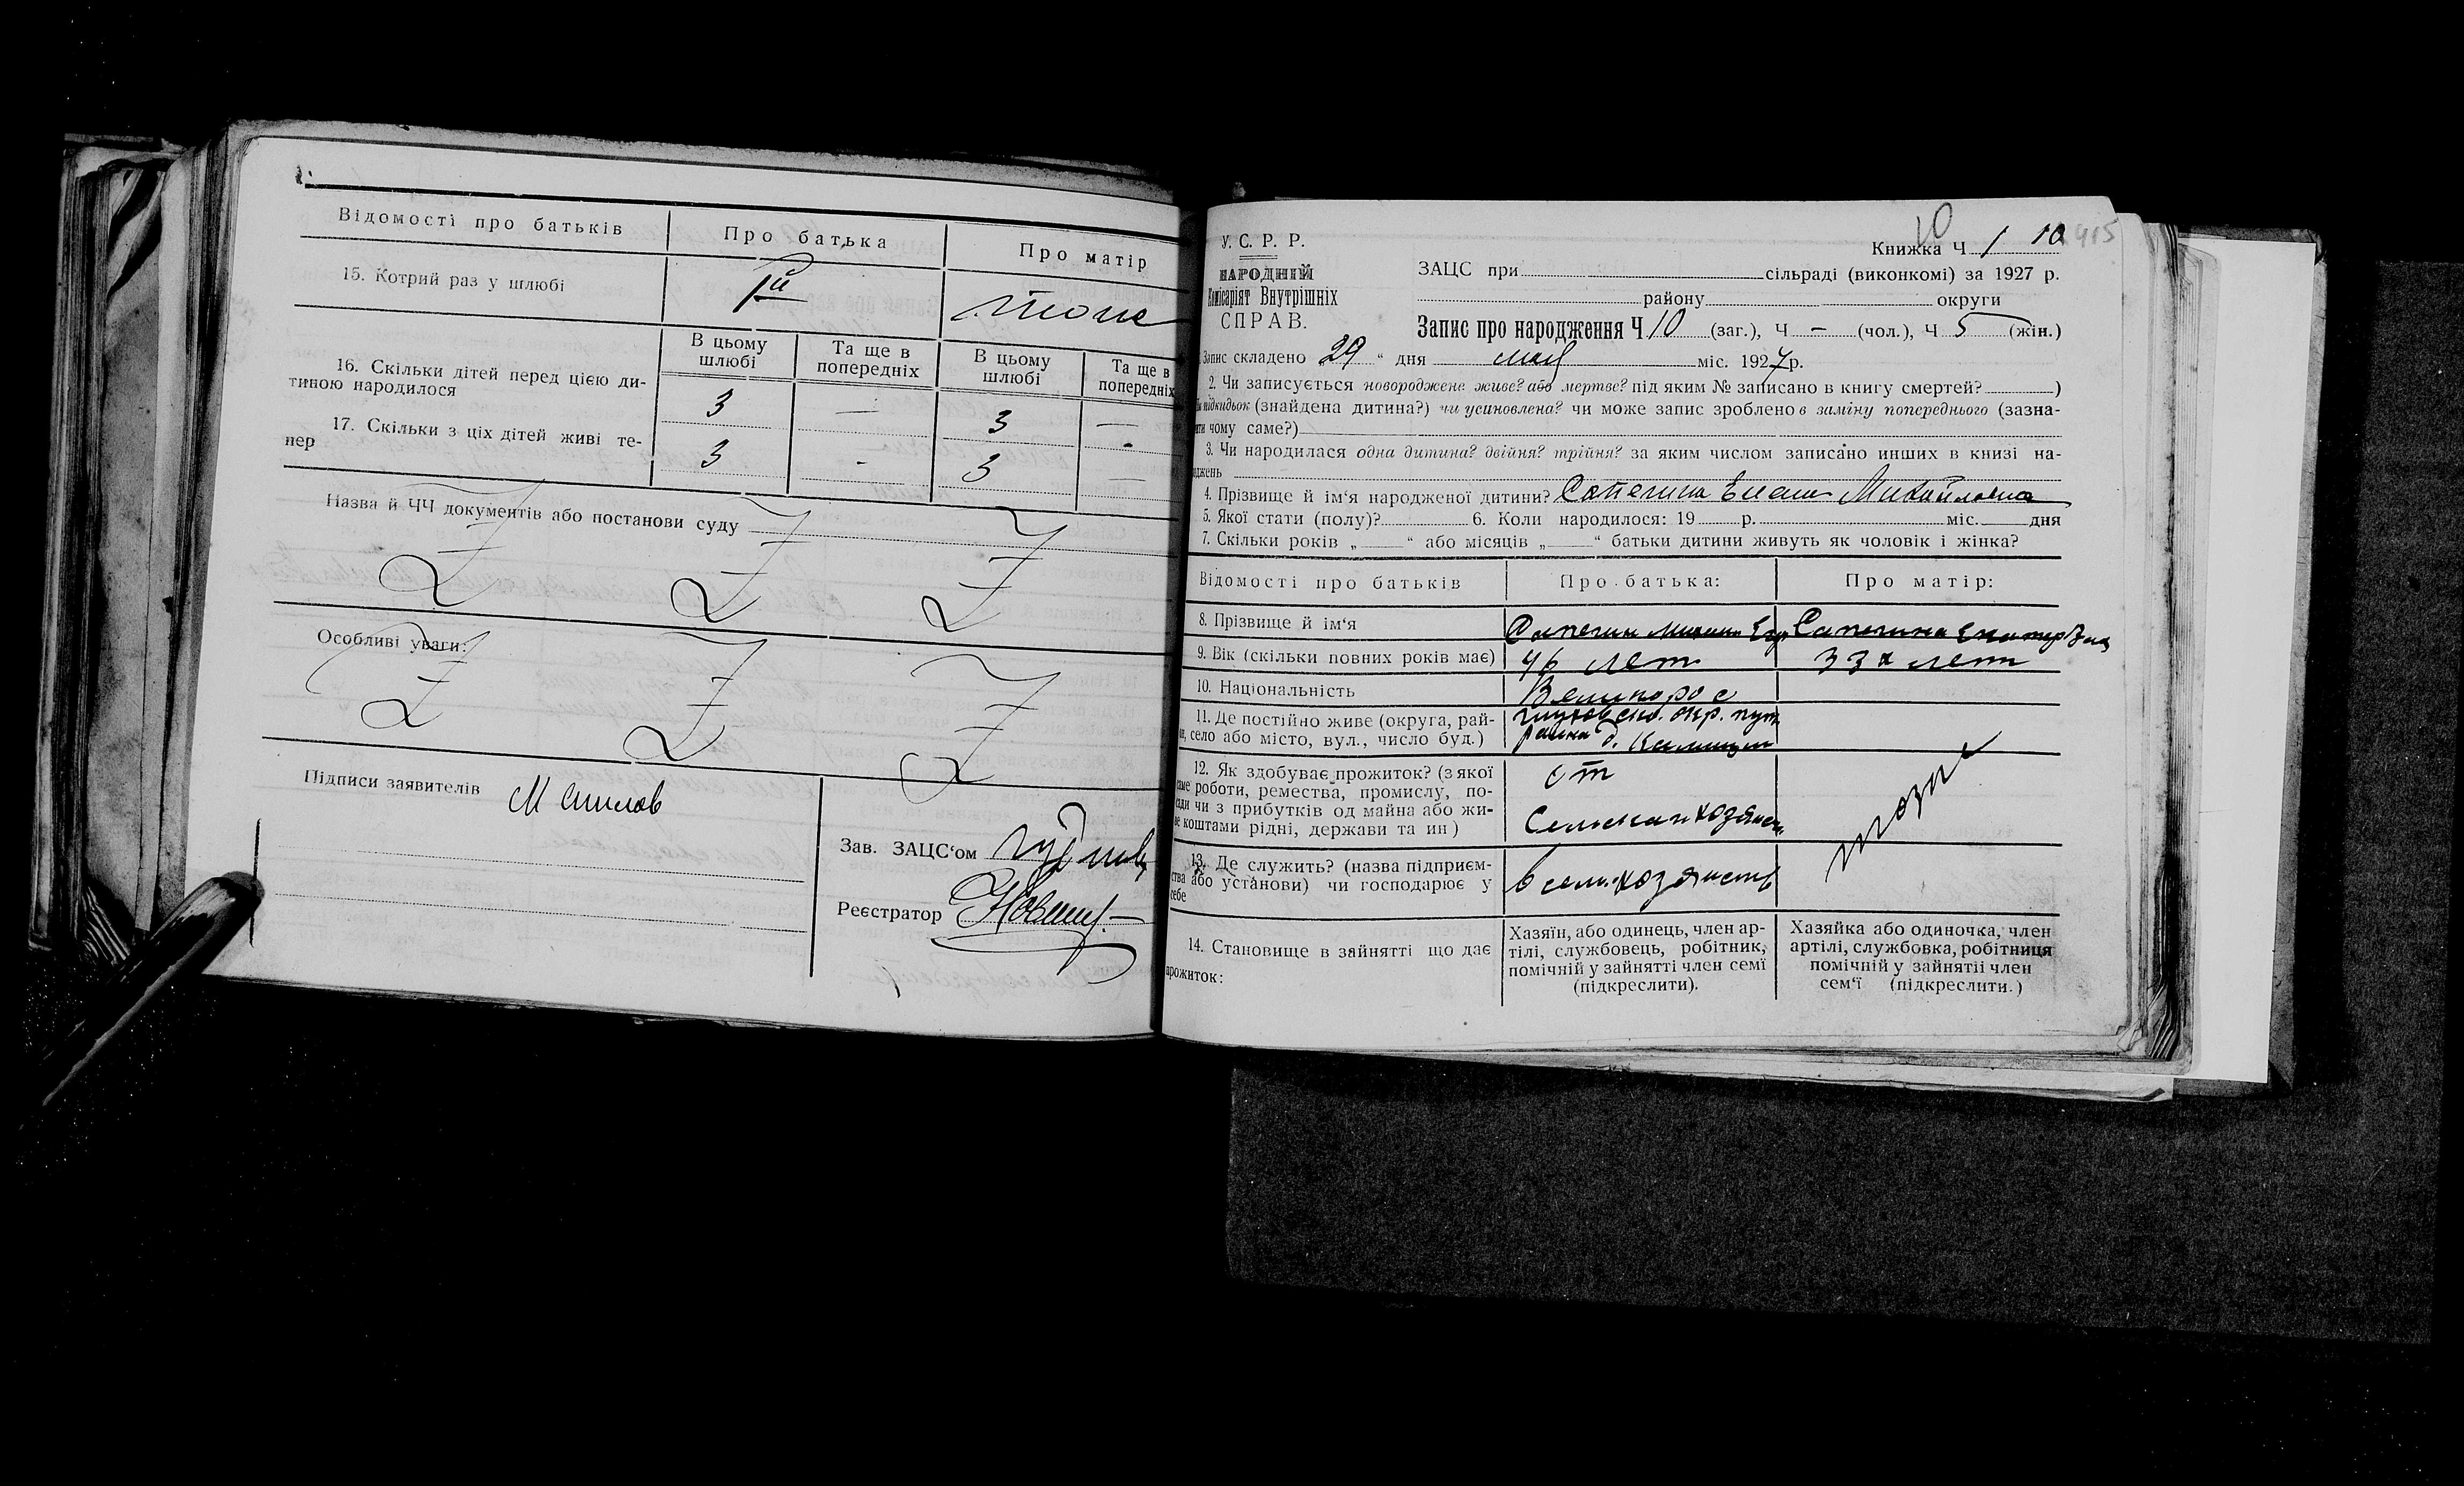 Відомості про батьків
Про батька
Про матір
15. Котрий раз у шлюбі
1й
тоже
16. Скільки дітей перед цією ди-
тиною народилося
В цьому шлюбі
Та ще в попередніх
В цьому шлюбі
Та ще в попередніх
3 — 3 —
17. Скільки з ціх дітей живі те-
пер
3 - 3 —
Назва й ЧЧ документів або постанови суду
Особливі уваги:
Підписи заявителів
Зав. ЗАЦС‘ом
Реєстратор
У. С. Р. Р.
НАРОДНІЙ
Комісаріят Внутрішніх
СПРАВ.
10
Книжка Ч 1 10 415
ЗАЦС при сільраді (виконкомі) за 1927 р.
району округи
Запис про народження Ч 10 (заг.), Ч - (чол.), Ч 5 (жін.)
Запис складено 29 “ дня мая міс. 1927 р.
2. Чи записується новороджене живе? або мертве? під яким № записано в книгу смертей? )
підкидьок (знайдена дитина?) чи усиновлена? чи може запис зроблено в заміну попереднього (зазна-
чити чому саме?)
3. Чи народилася одна дитина? двійня? трійня? за яким числом записано инших в книзі на-
роджень
4. Прізвище й ім‘я народженої дитини? Сапегина Елена Михайловна
5. Якої стати (полу)? 6. Коли народилося: 19 р. міс. дня
7. Скільки років „ “ або місяців „ “ батьки дитини живуть як чоловік і жінка?
Відомості про батьків
Про батька:
Про матір:
8. Прізвище й ім‘я
Сапегин Михаил Егр
Сапегина Екатерина
9. Вік (скільки повних років має)
46 лет
33 х лет
10. Національність
Великорос
11. Де постійно живе (округа, рай-
он, село або місто, вул., число буд.)
глуховско. окр. пут.
района д.
12. Як здобуває прожиток? (з якої
саме роботи, ремества, промислу, по-
сади чи з прибутків од майна або жи-
ве коштами рідні, держави та ин)
от
Сельскаго хозяйст.
тоже
13. Де служить? (назва підприєм-
ства або установи) чи господарює у
себе
в сель. хозяйств
14. Становище в зайнятті що дає
прожиток:
Хазяїн, або одинець, член ар-
тілі, службовець, робітник,
помічній у зайнятті член семї
(підкреслити).
Хазяйка або одиночка, член
артілі, службовка, робітниця
помічній у зайнятіі член
сем‘ї (підкреслити.)